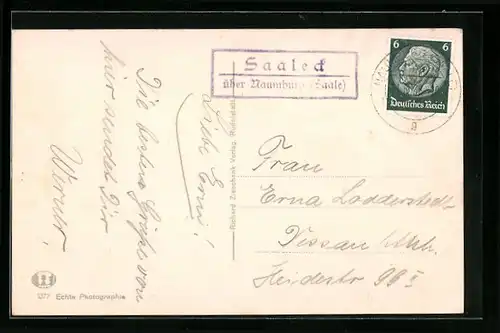 Saaleck
über Naumburg (Saale)
6 6
Deutsches Reich
g
Liebe Erni!
Die besten Grüße von
hier sendet Dir
Werner!
Richard Zieschank Verlag, Rudolstadt
Frau
Erna Lodderstedt
Dessau/Anh.
Heidestr 99 I
1377 Echte Photographie